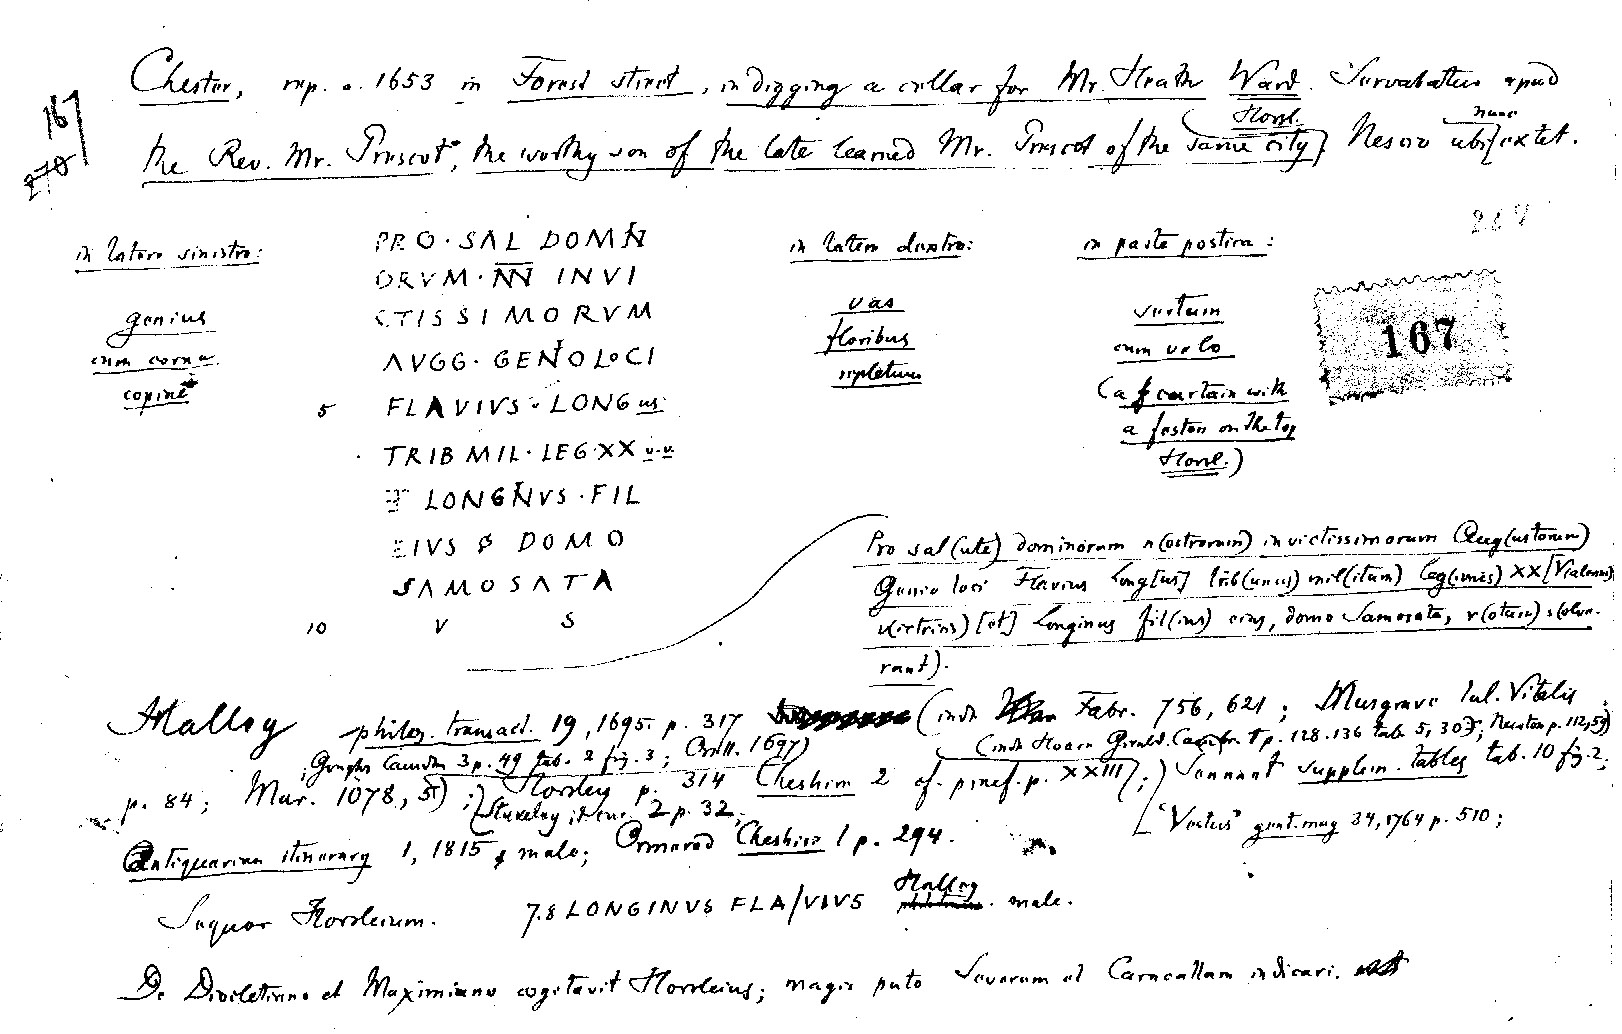 Chester, rep. a. 1653 in Forest street, in digging a cellar for Mr. Heath Ward Servabatur apud
Horsl.
the Rev. Mr. Prescot, the worthy son of the late learned Mr. Prescot of the same city) Nescio ubi nunc extet.
167
270
267
in latere sinistro:
genius
cum cornu
copiae
PRO · SAL DOMN
ORVM · NN INVI
CTISSIMORVM
AVGG · GENIO LOCI
5 FLAVIVS · LONGus
TRIB MIL · LEG · XX v.v.
LONGINVS · FIL
EIVS DOMO
SAMOSATA
10 V S
in latere dextro:
vas
floribus
repletum
in parte postica:
sertum
cum velo
(a curtain with
a feston on the top
Horsl.)
167
Pro sal(ute) dominorum n(ostrorum) invictissimorum Aug(ustorum)
Genio loci Flavius Long[us] trib(unus) mil(itum) leg(ionis) XX [V(aleriae)
v(ictricis) [et] Longinus fil(ius) eius, domo Samosata, v(otum) s(olve-
rant).
Halley philos. transact. 19, 1695 p. 317 (inde Fabr. 756, 621; Musgrave Iul. Vitalis
p. 84; Mur. 1078, 5) ; Horsley p. 314 Cheshire 2 cf. praef. p. XXIII; ) supplem. tables tab. 10 fig. 2;
Goughs Camden 3 p. 49 tab. 2 fig. 3; 1697)
Stukeley itiner. 2 p. 32;
"Vestus" gent. mag 34, 1764 p. 510;
Antiquarian itinerary 1, 1815 male; Ormerod Cheshire 1 p. 294.
Sequor Horsleium. 7.8 LONGINVS FLA/VIVS Halley male.
De Diocletiano et Maximiano cogitavit Horsleius; magis puto Severum et Caracallam indicari.